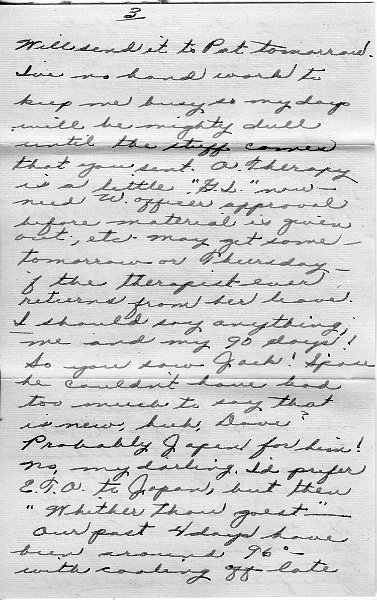 3
Will send it to Pat tomorrow.
I've no hand work to
keep me busy so my days
will be mighty dull
until the stuff comes
that you sent. O. Therapy
is a little "G.I." now —
need W. officer approval
before material is given
out, etc. May get some —
tomorrow or Thursday —
if the therapist ever
returns from her leave.
I should say anything;
me and my 90 days!
So you saw Jack! 'Spose
he couldn't have had
too much to say that
is new, huh, Dave?
Probably Japan for him!
No, my darling, I'd prefer
E.T.O. to Japan, but then
"Whither thou goest" —
Our past 4 days have
been around 96° —
with cooling off late